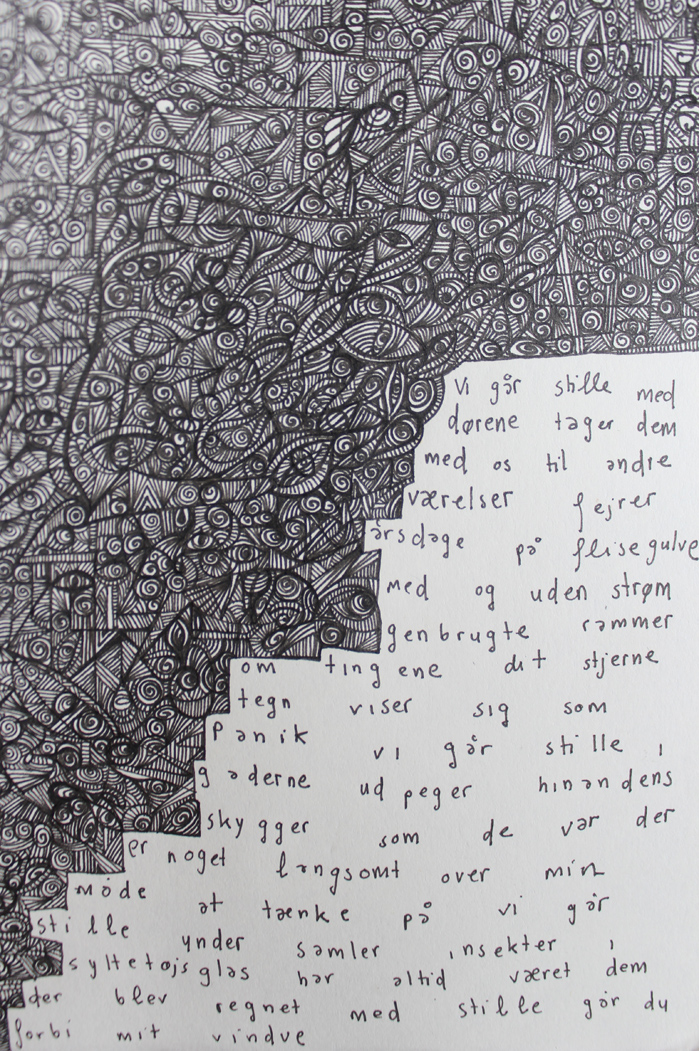 Vi går stille med
dørene tager dem
med os til andre
værelser fejrer
årsdage på flisegulve
med og uden strøm
genbrugte rammer
om tingene dit stjerne
tegn viser sig som
panik vi går stille i
gaderne udpeger hinandens
skygger som de var der
er noget langsomt over min
måde at tænke på vi går
stille ynder samler insekter i
syltetøjsglas har altid været dem
der blev regnet med stille går du
forbi mit vindve